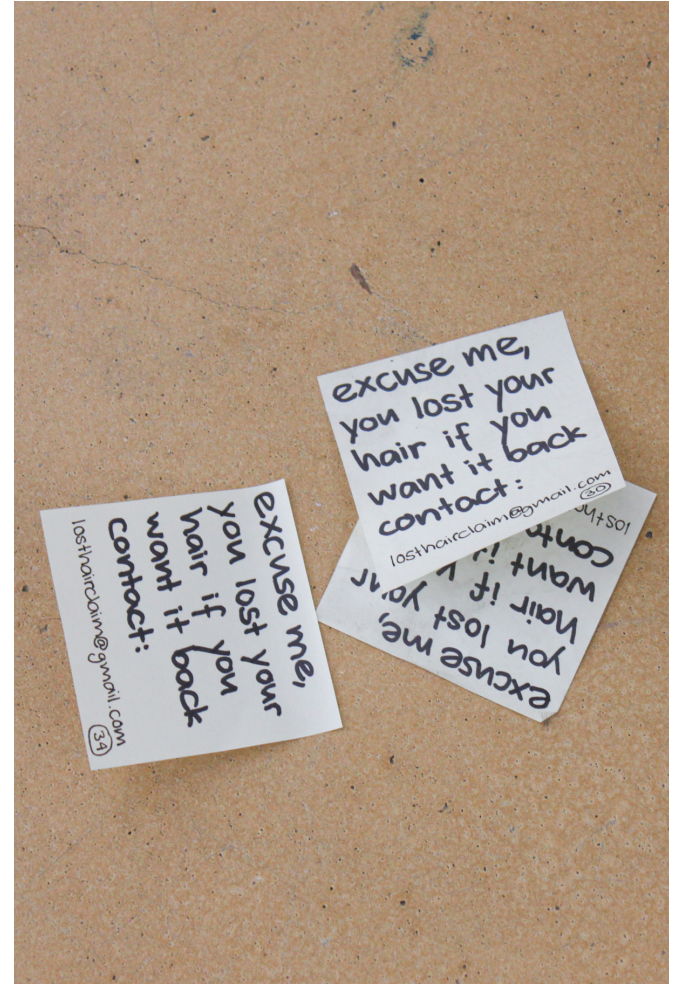 excuse me,
you lost your
hair if you
want it back
contact:
losthairclaim@gmail.com
30
excuse me,
you lost your
hair if you
want it back
contact:
losthairclaim@gmail.com
34
excuse me,
you lost your
hair if
want it
conta
lostha